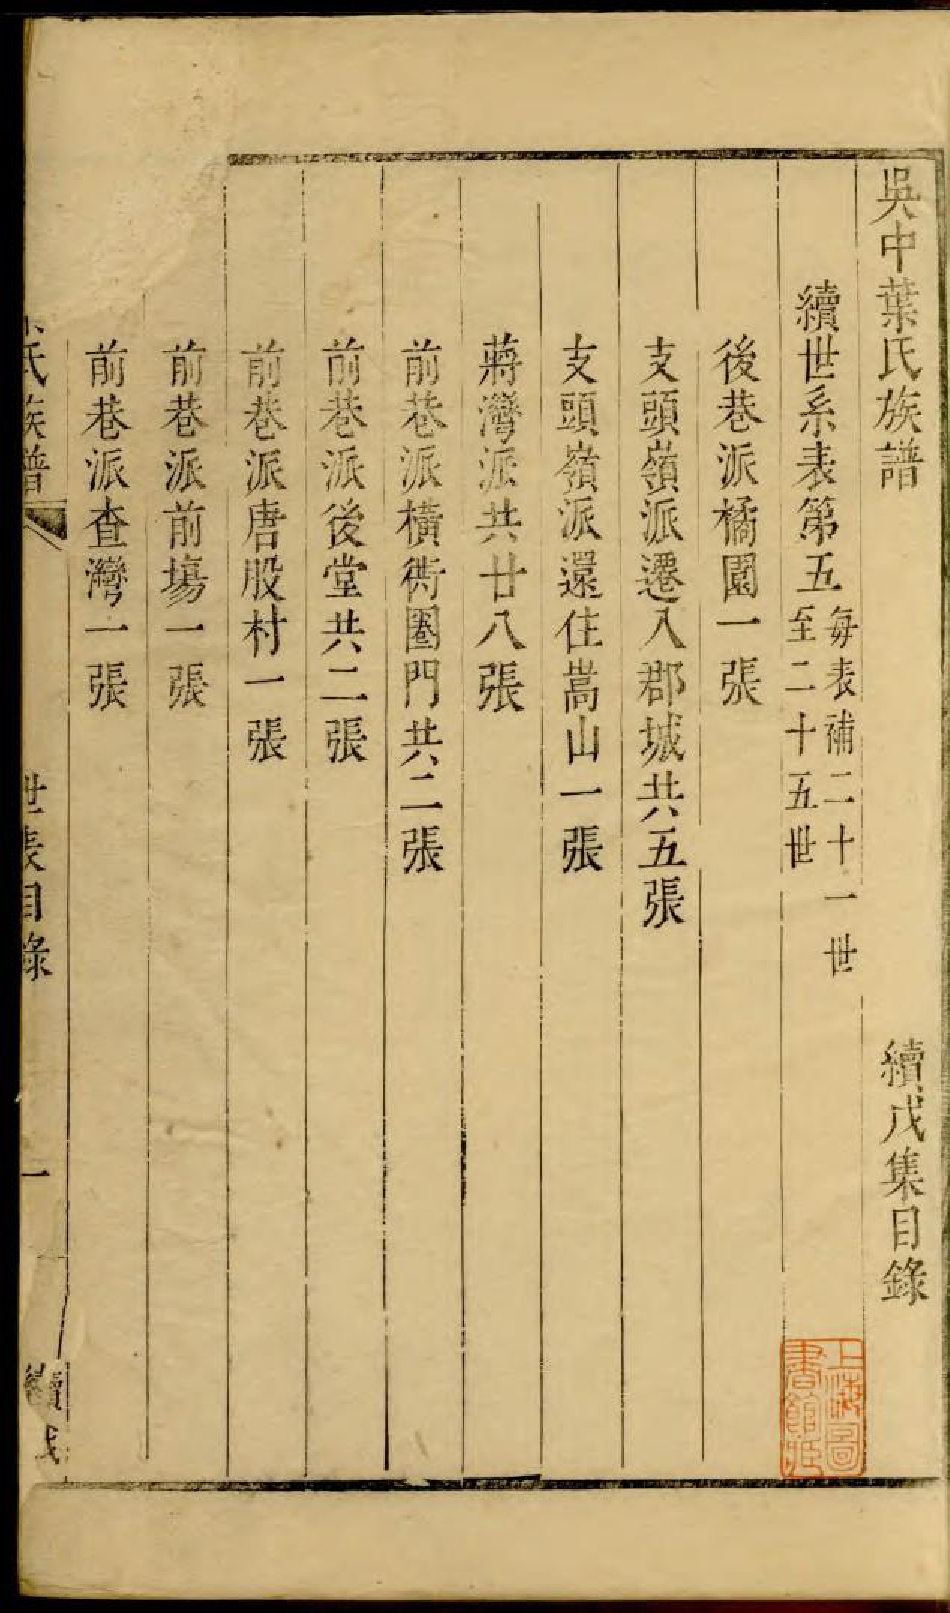 吳中葉氏族譜 續戊集目錄
續世系表第五 每表補二十一世
至二十五世
後巷派橘園一張
支頭嶺派遷入郡城共五張
支頭嶺派還住嵩山一張
蔣灣派共廿八張
前巷派橫衖圈門共二張
前巷派後堂共二張
前巷派唐股村一張
前巷派前塲一張
前巷派查灣一張
氏族譜 世表目錄 一 續戊
上海圖
書館藏